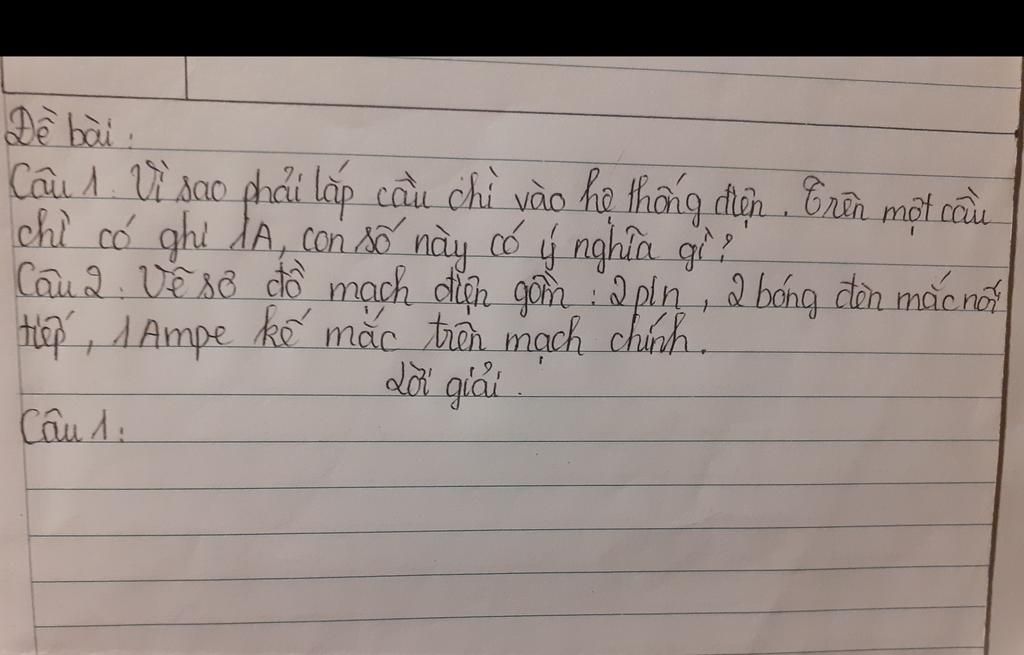 Đề bài:
Câu 1. Vì sao phải lắp cầu chì vào hệ thống điện. Trên một cầu
chì có ghi 1A, con số này có ý nghĩa gì?
Câu 2. Vẽ sơ đồ mạch điện gồm: 2 pin, 2 bóng đèn mắc nối
tiếp, 1 Ampe kế mắc trên mạch chính.
Lời giải.
Câu 1: